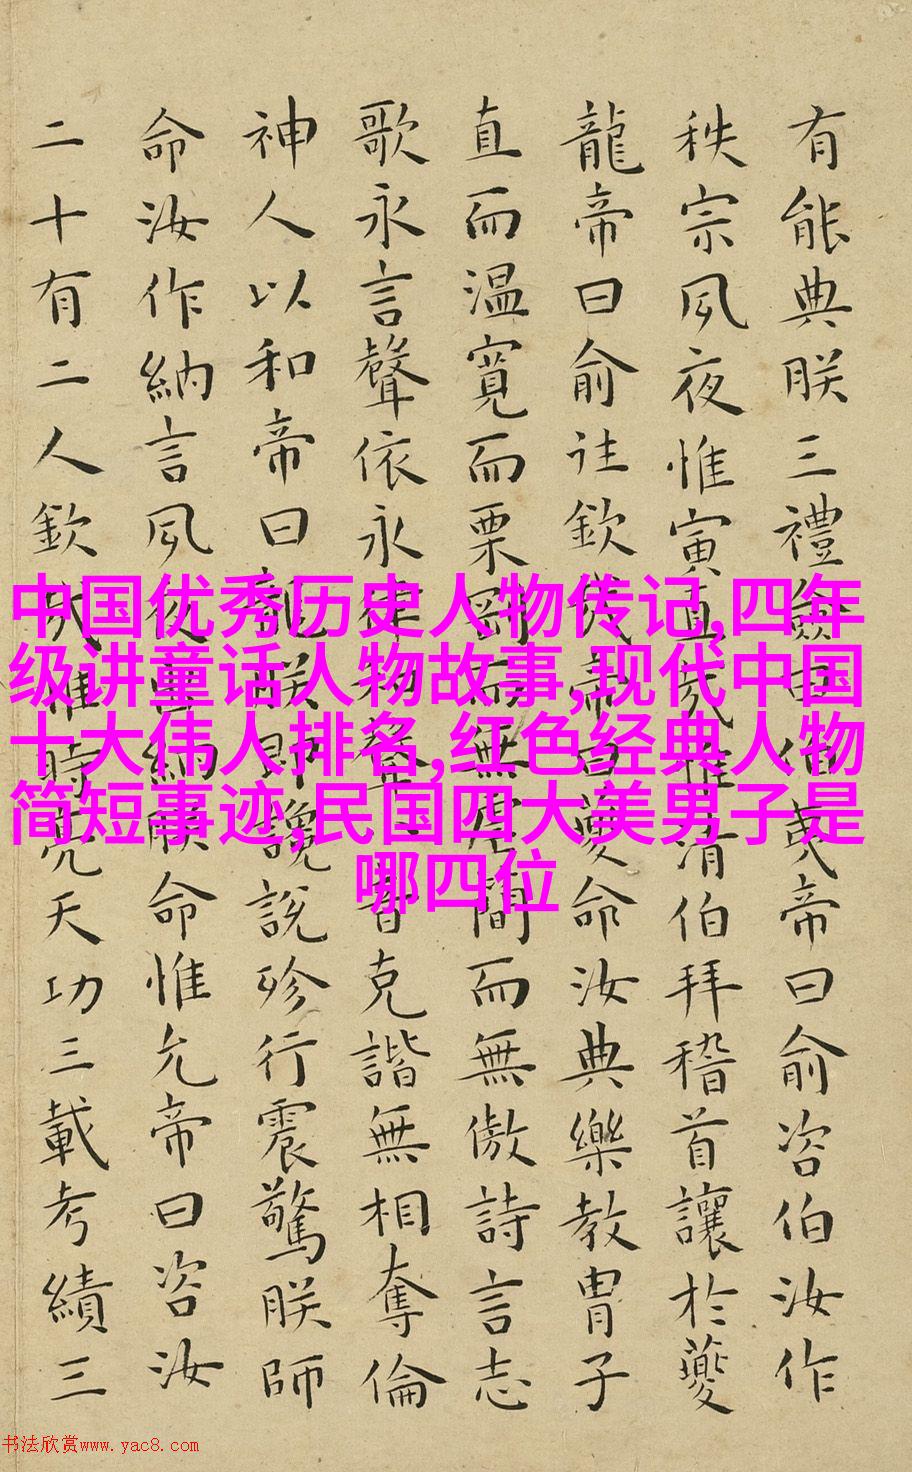 有能典朕三禮僉曰伯夷帝曰俞咨伯汝作
秩宗夙夜惟寅直哉惟清伯拜稽首讓於夔
龍帝曰俞往欽哉帝曰夔命汝典樂教冑子
直而温寬而栗剛而無虐簡而無傲詩言志
歌永言聲依永律和聲八音克諧無相奪倫
神人以和帝曰龍朕堲讒說殄行震驚朕師
命汝作納言夙夜出納朕命惟允帝曰咨汝
二十有二人欽哉惟時亮天功三載考績三
中国优秀历史人物传记,四年
级讲童话人物故事,现代中国
十大伟人排名,红色经典人物
简短事迹,民国四大美男子是
哪四位
书法欣赏www.yac8.com